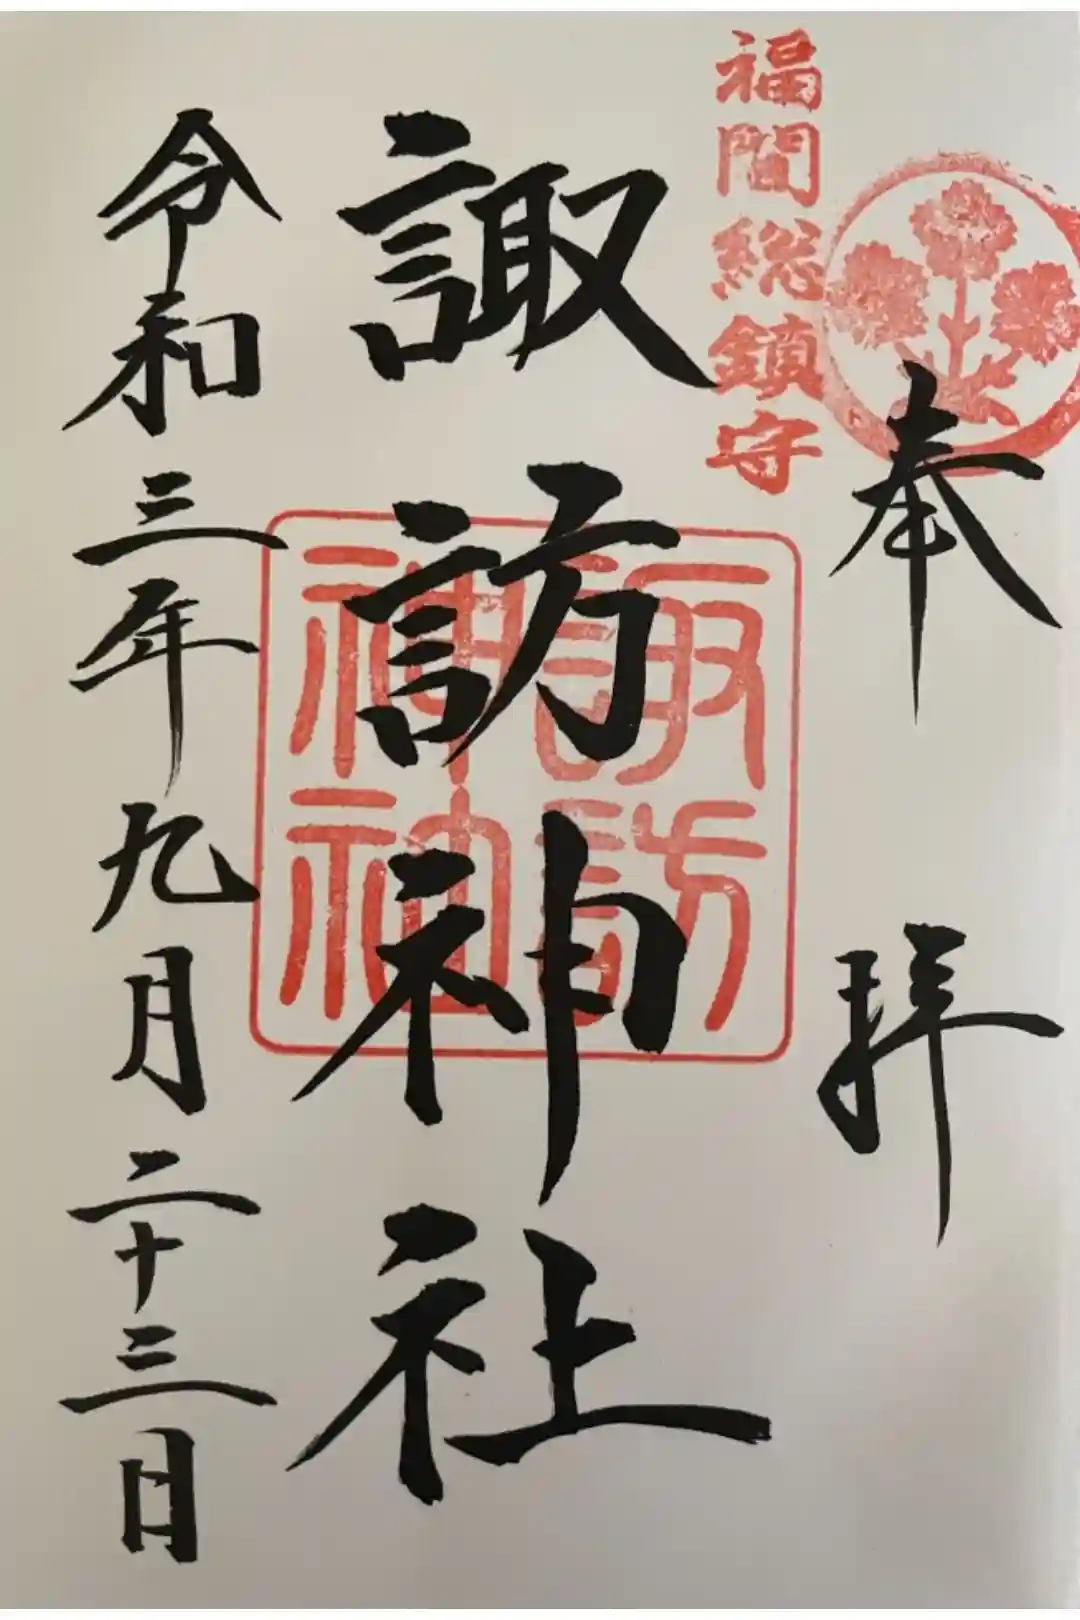 奉拝
福間総鎮守
諏訪神社
諏訪神社
令和三年九月二十三日